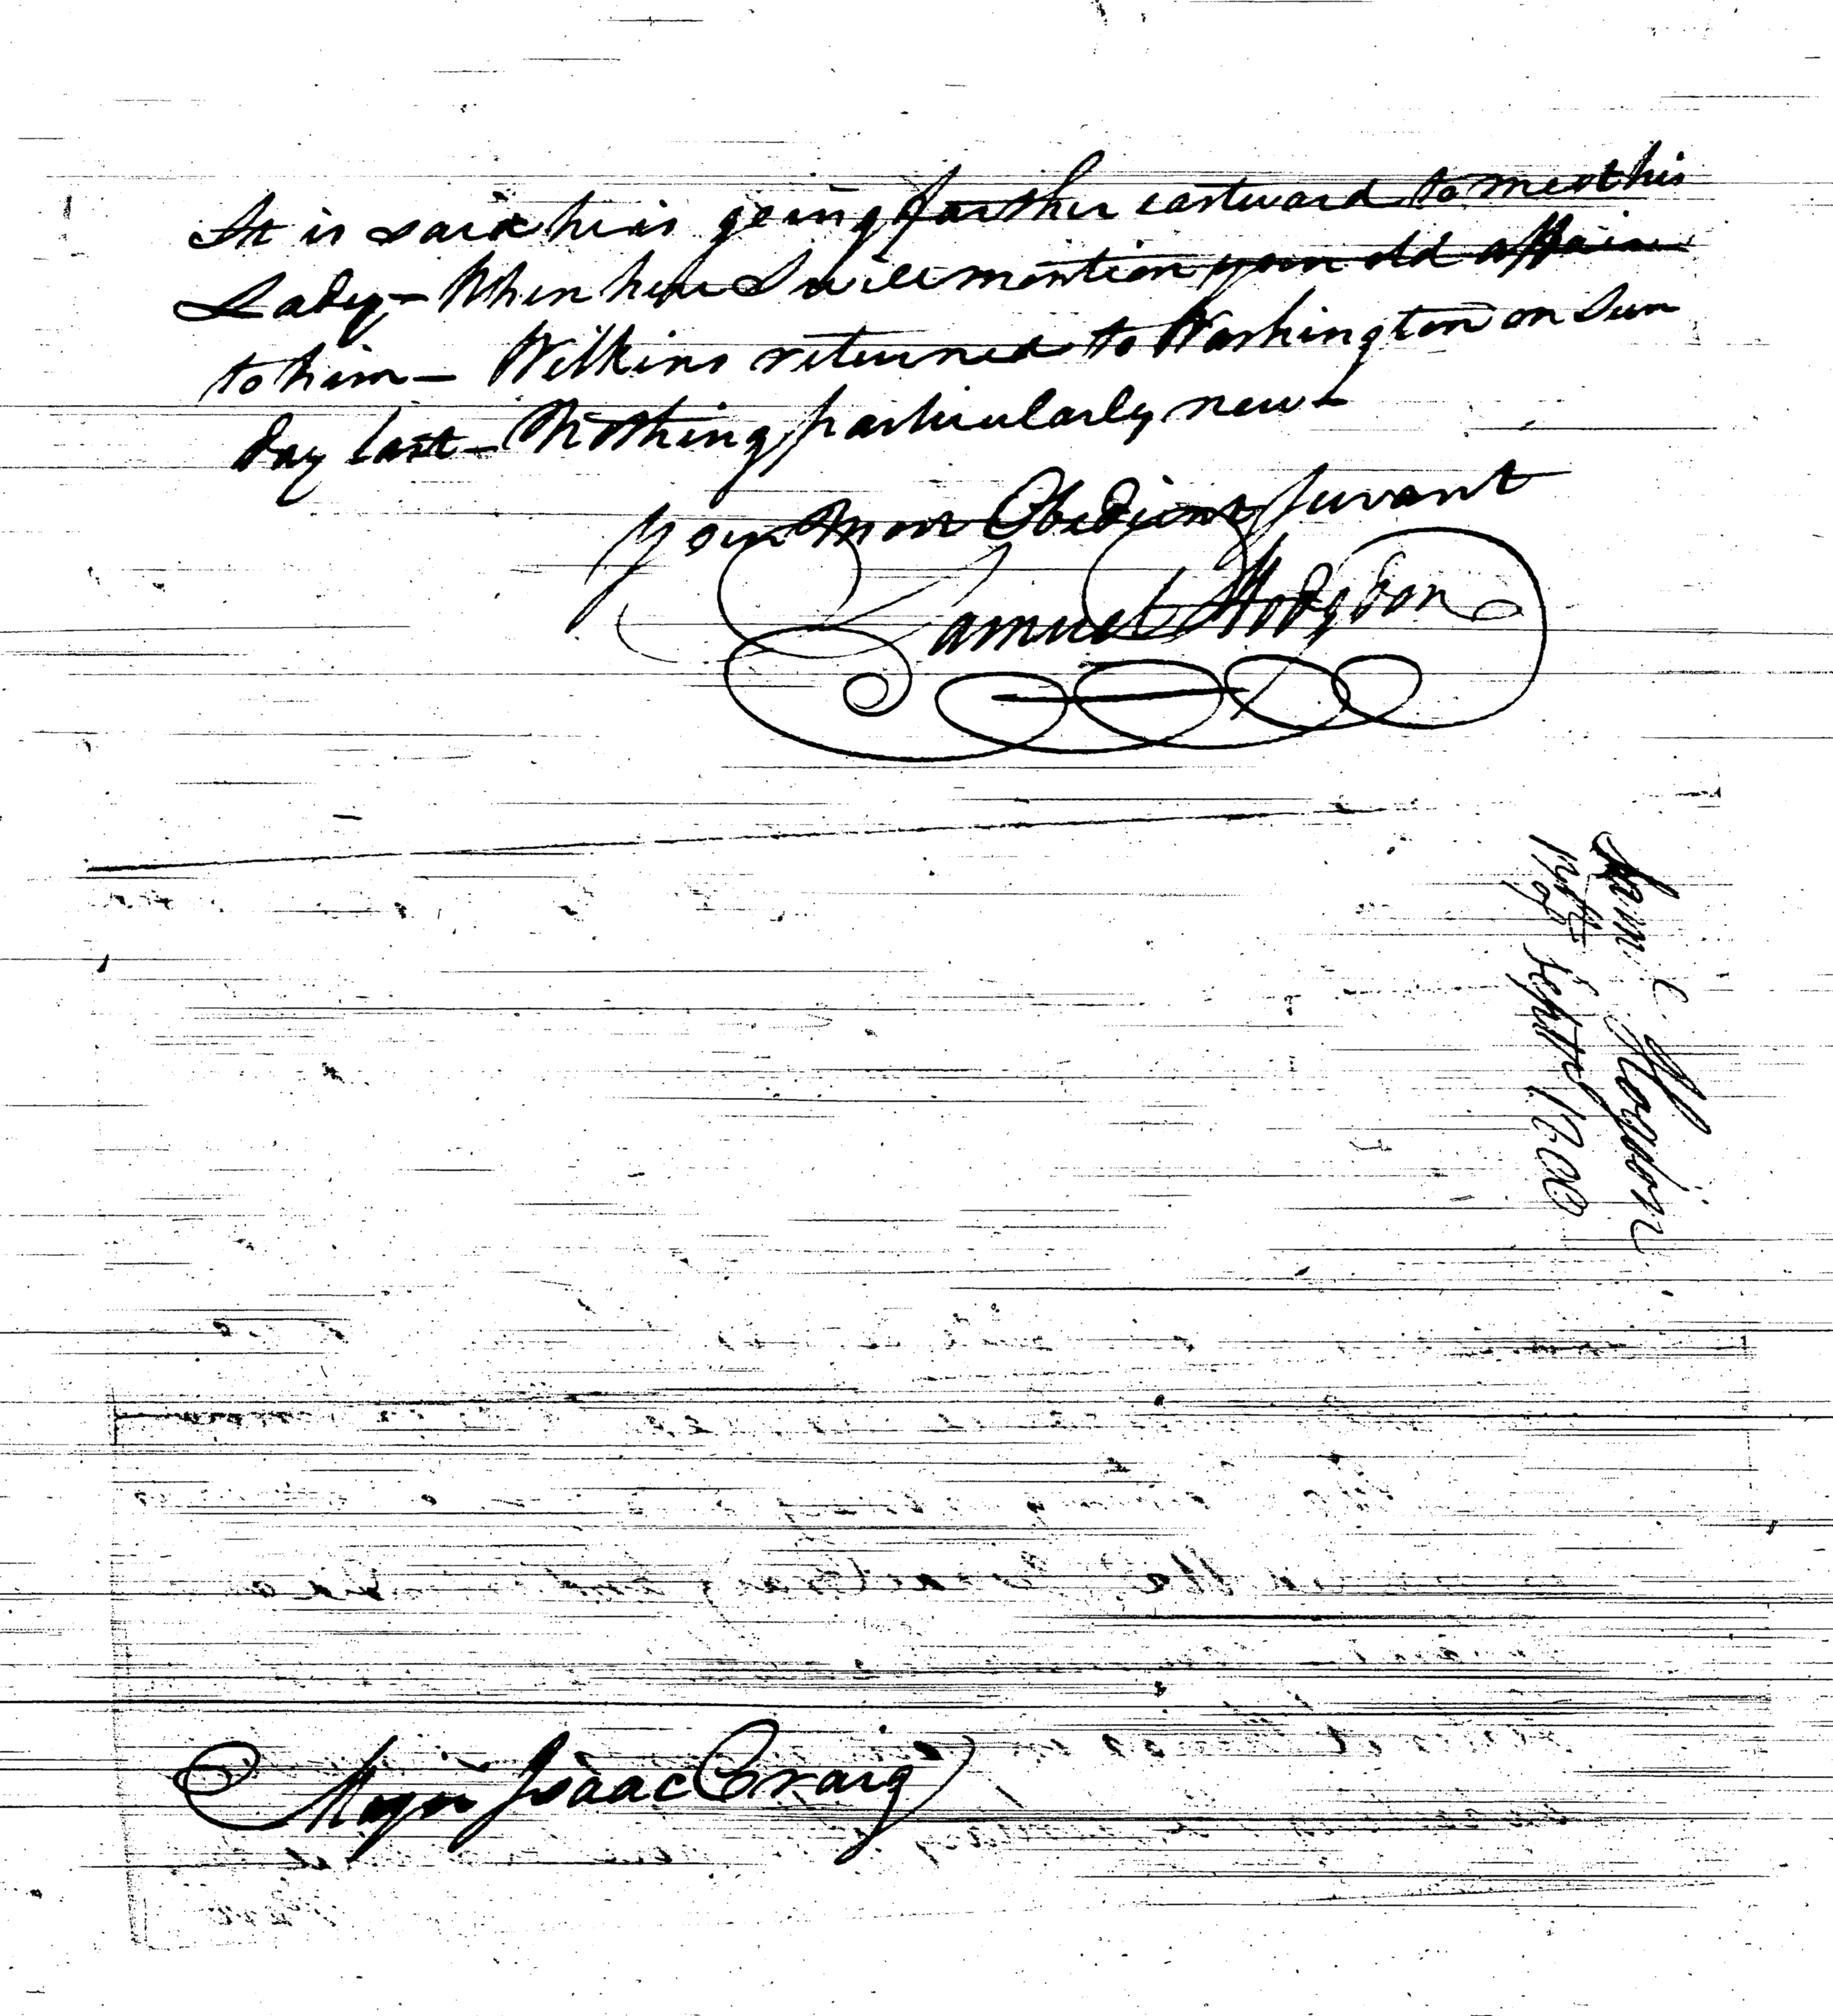 It is said he is going farther eastward to meet his
Lady – When here I will mention your old affair
to him – Wilkins returned to Washington on Sun
day last – Nothing particularly new –
Your Most Obedient Servant
Samuel Hodgdon
Sam l Hogdon
Septr 1800
Major Isaac Craig